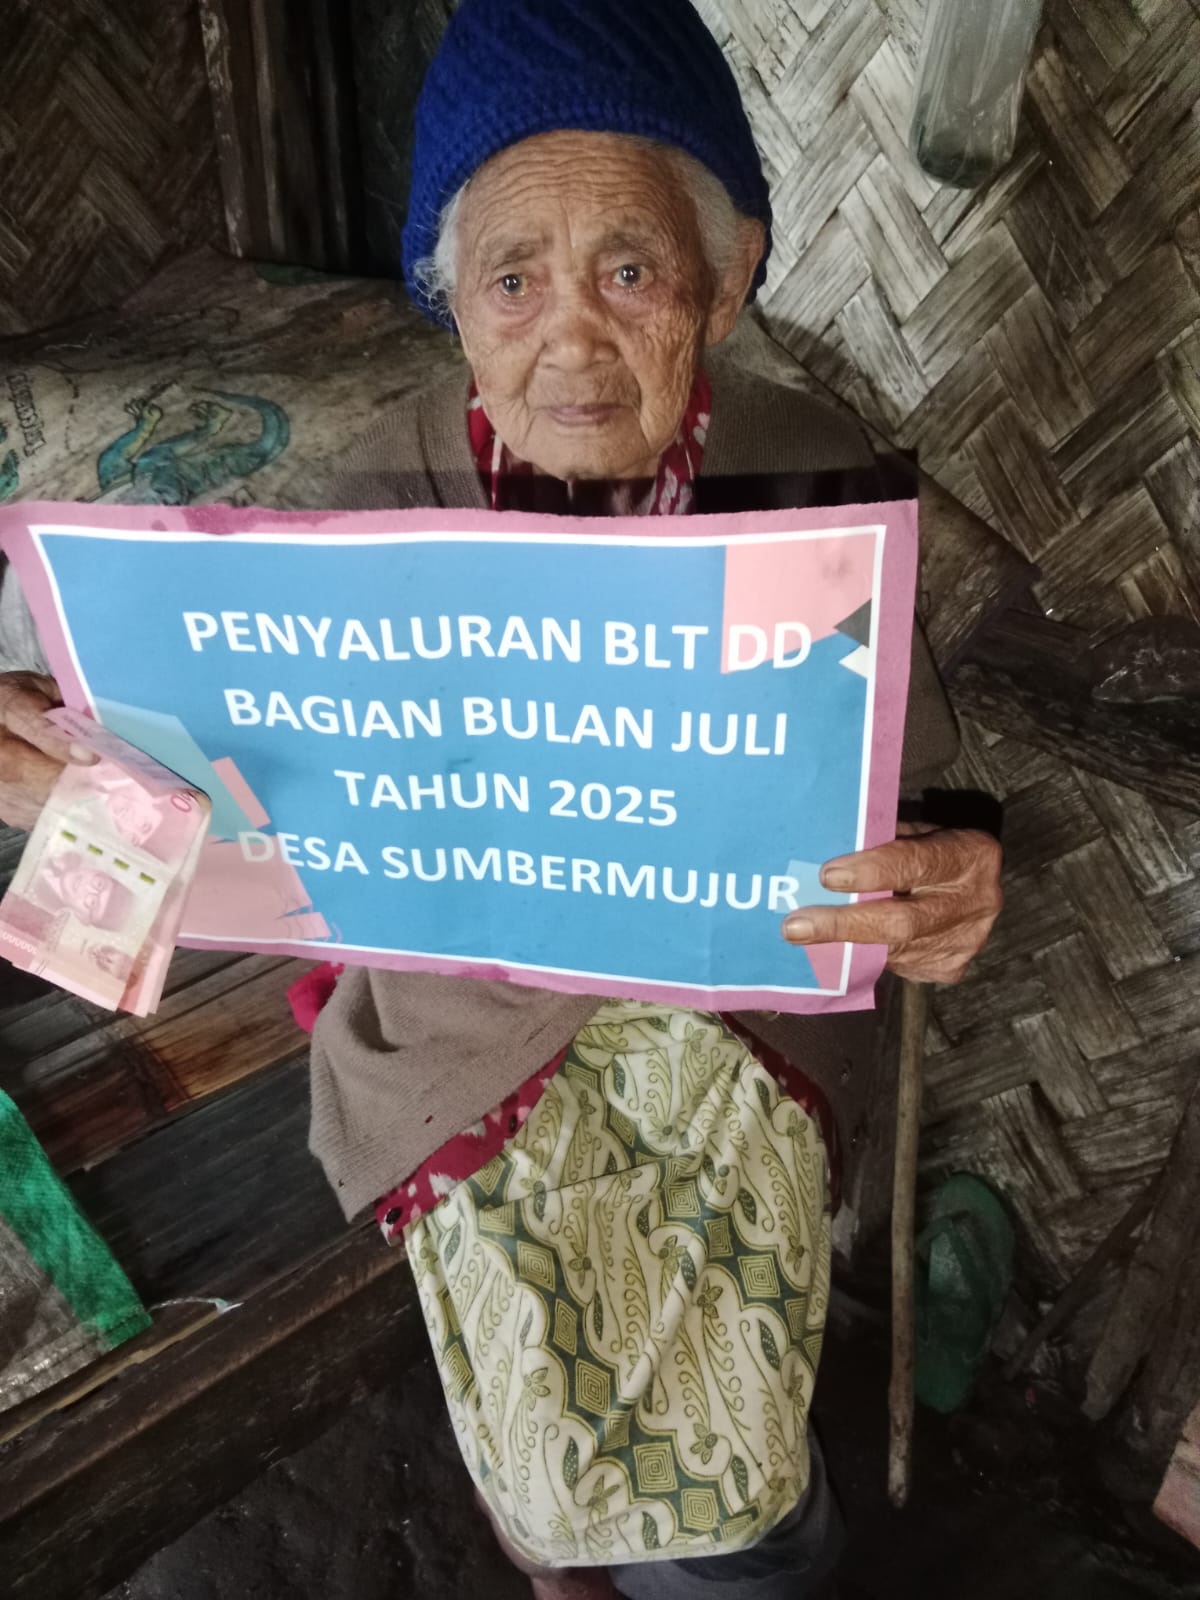 PENYALURAN BLT DD
BAGIAN BULAN JULI
TAHUN 2025
DESA SUMBERMUJUR